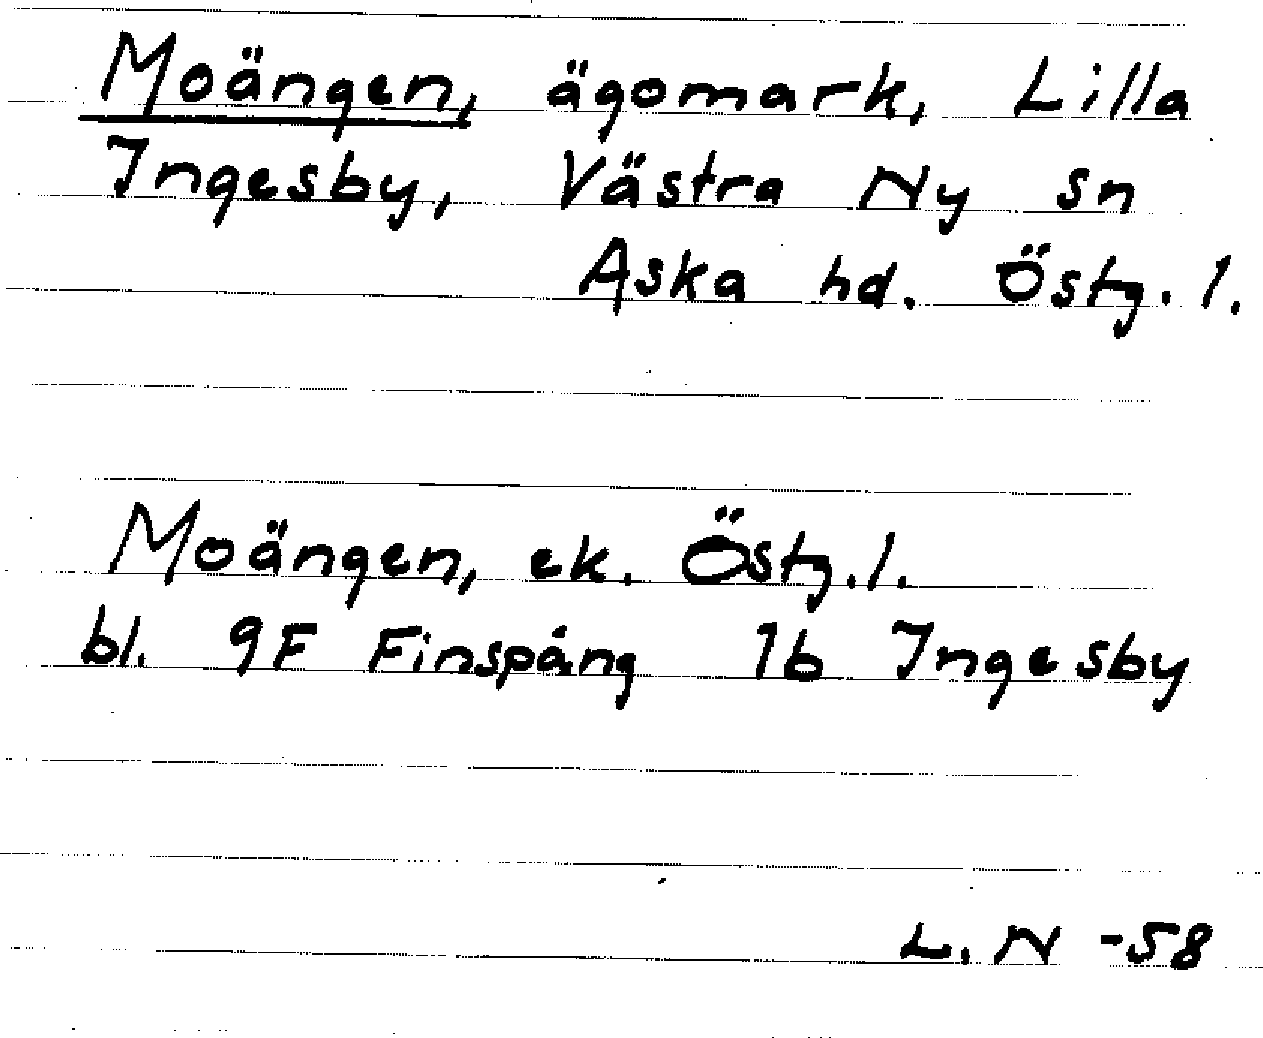 Moängen, ägomark, Lilla
Ingesby, Västra Ny sn
Aska hd. Östg. l.
Moängen, ek. Östg. l.
bl. 9F Finspång 1b Ingesby
L. N -58